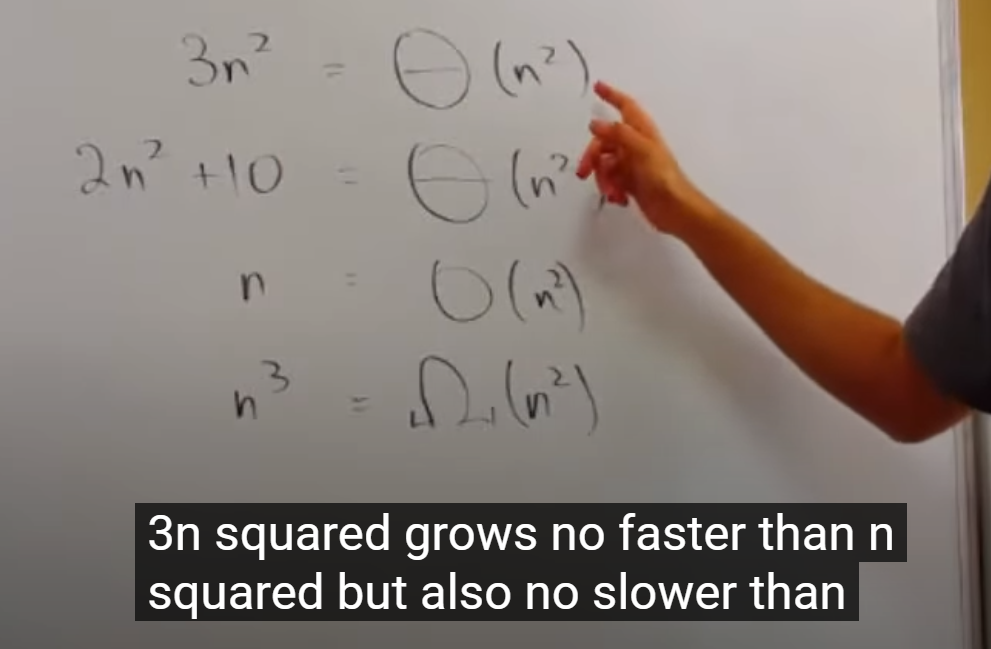 3n² = Θ(n²)
2n² +10 = Θ(n²
n = O(n²)
n³ = Ω(n²)
3n squared grows no faster than n
squared but also no slower than